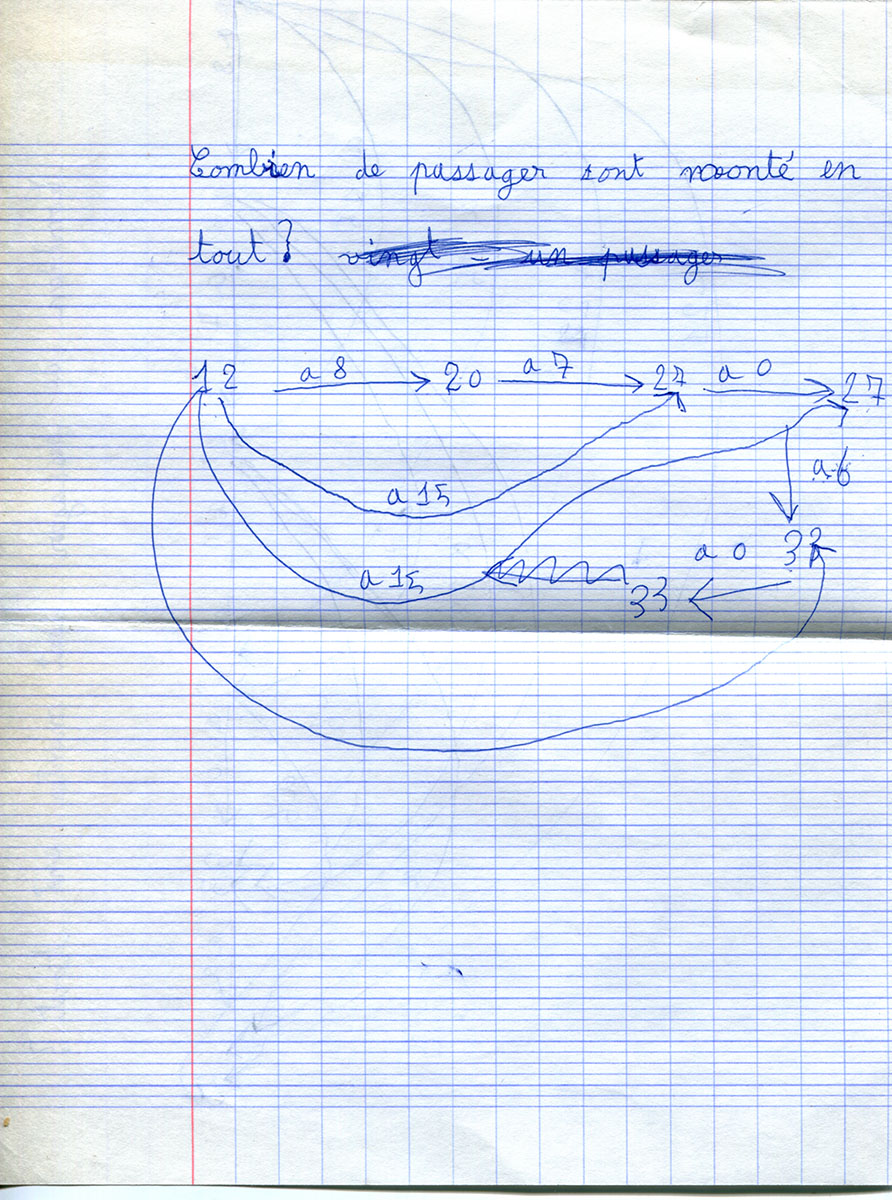 Combien de passager sont monté en
tout? vingt-un passager
12 a 8 20 a 7 27 a 0 27
a 6
a 15
a 0 33
a 15
33